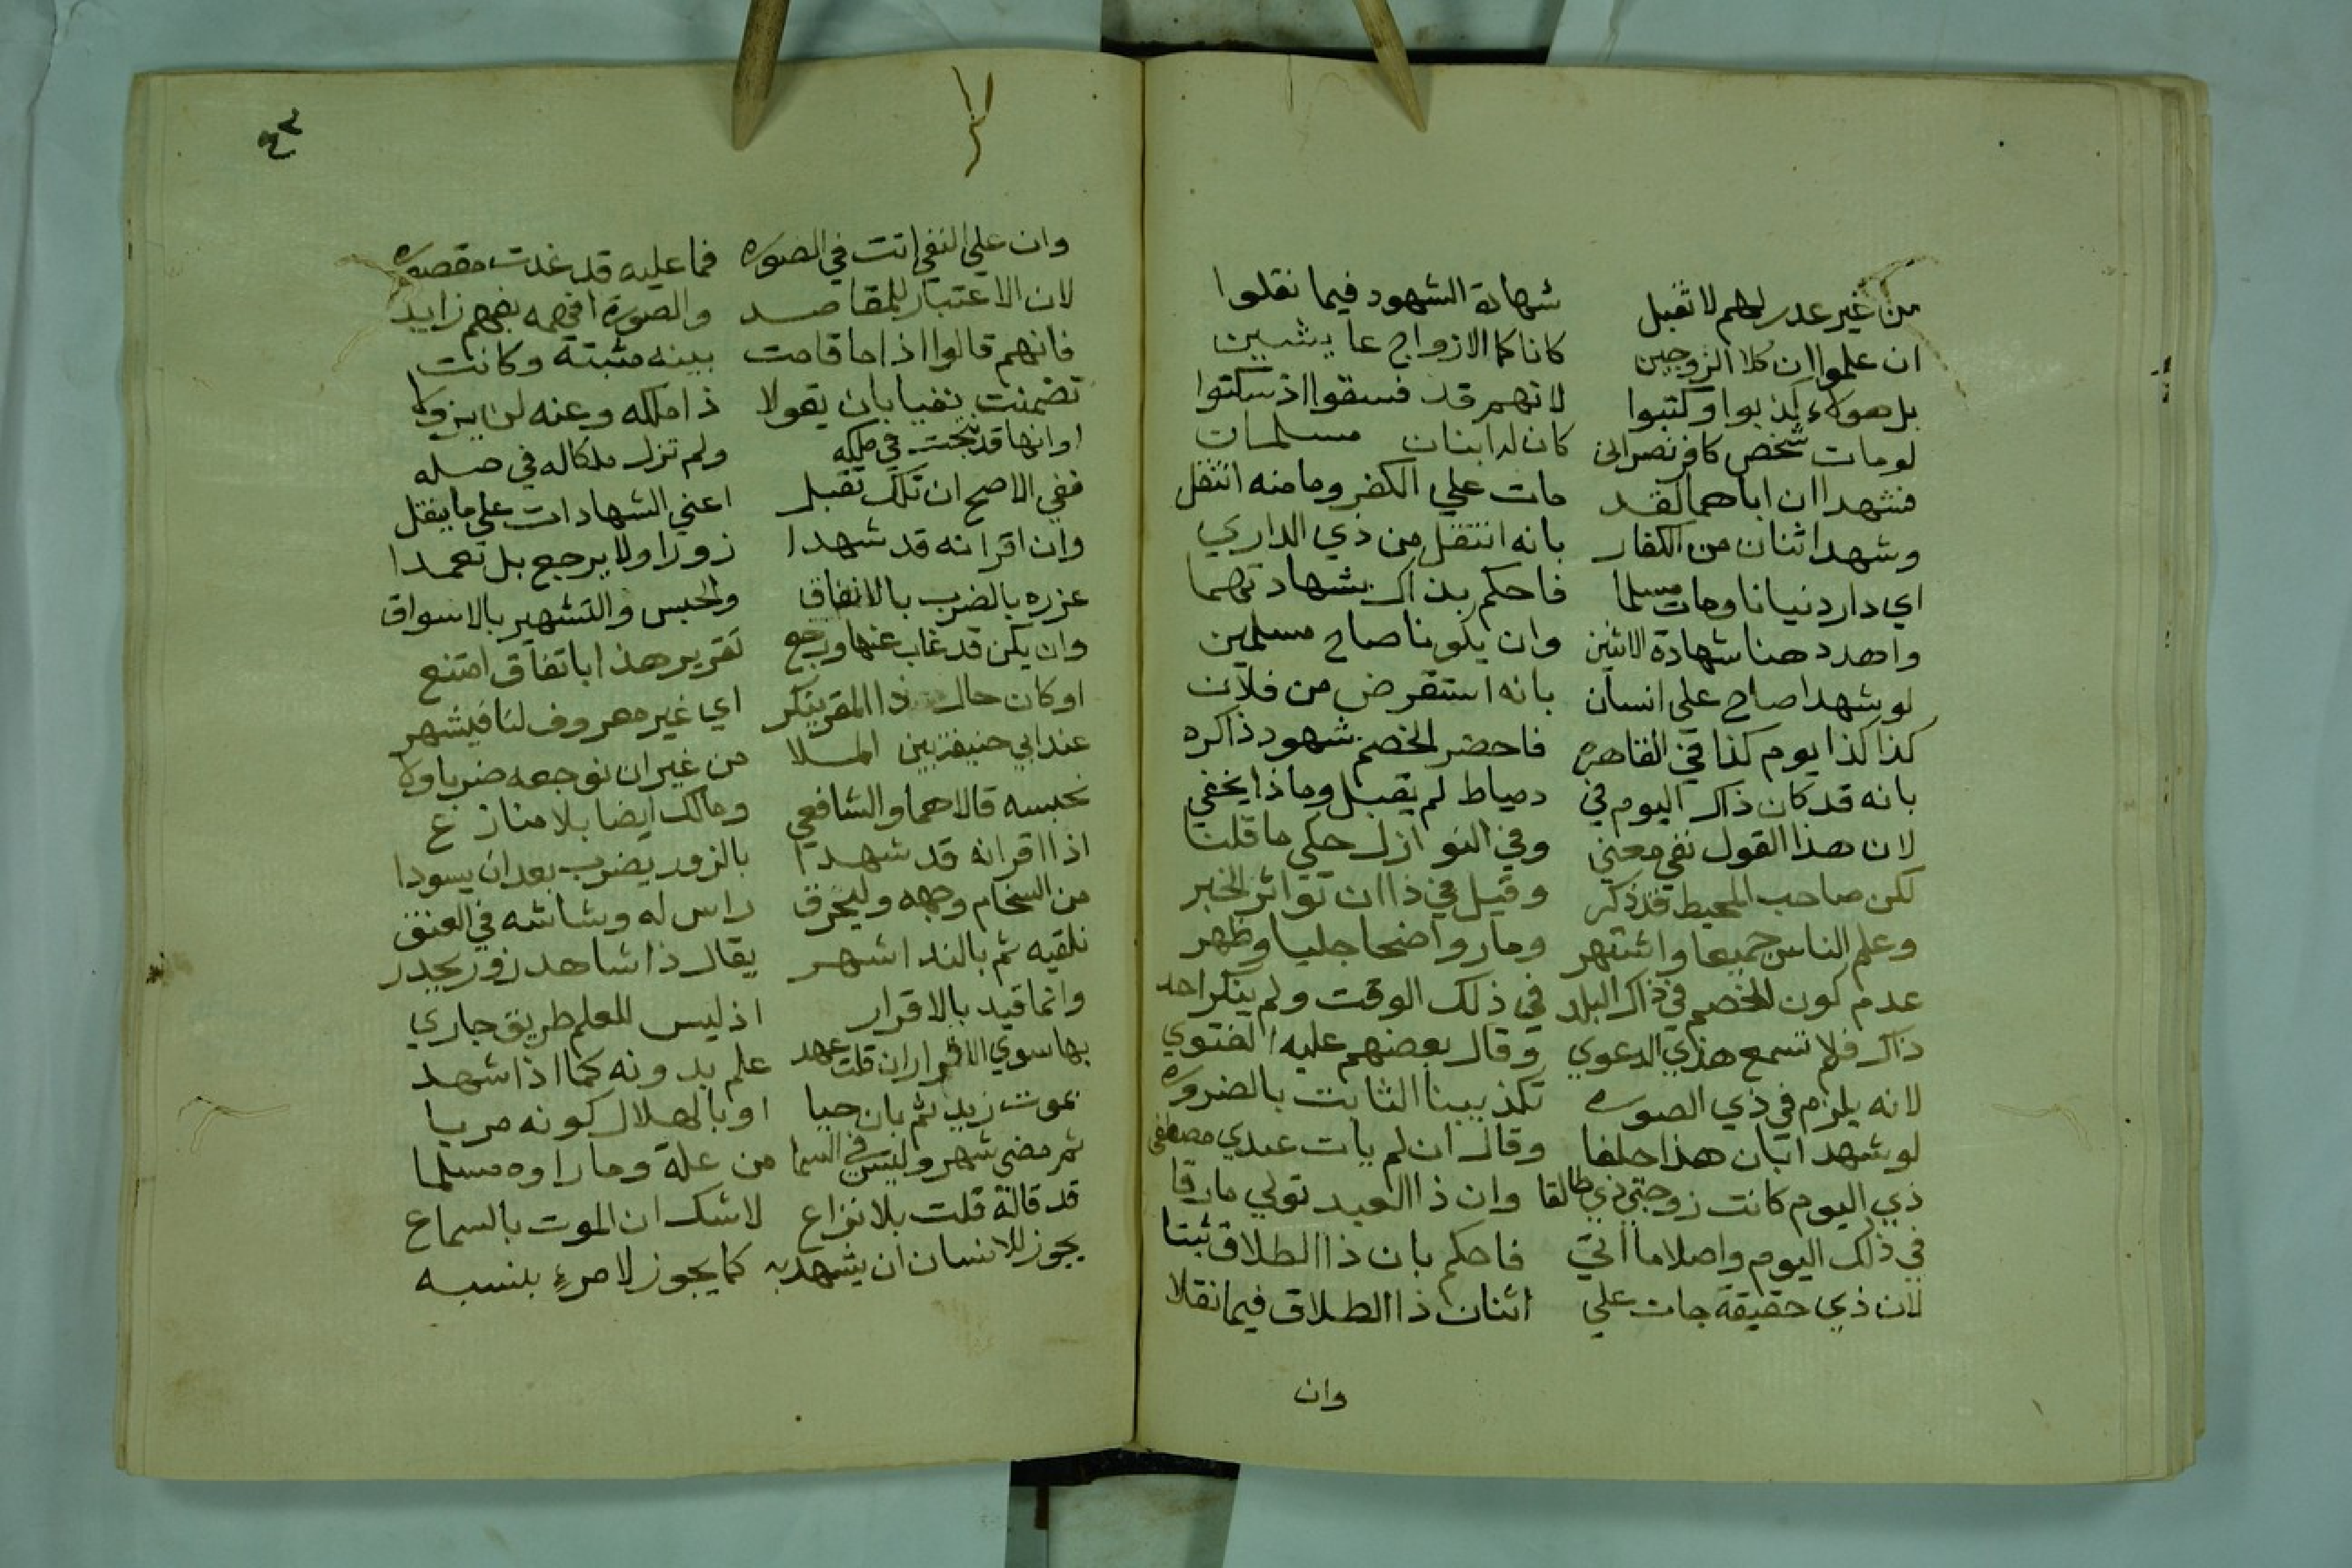 من غير عذر لهم لا تقبل شهادة الشهود فيما نقلوا
ان علموا ان كلا الزوجين كانا كما الازواج عايشين
بل هولاء كذبوا وكتبوا لانهم قد فسقوا اذ سكتوا
لومات شخص كافر نصراني كان له ابنان مسلمان
فشهدا ان اباهما لقد مات علي الكفر وما منه انتقل
وشهد اثنان من الكفار بانه انتقل من ذي الداري
اي دار دنيانا ومات مسلما فاحكم بذاك بشهادتهما
واهدد هنا شهادة الاثنين وان يكونا صاح مسلمين
لو شهدا صاح علي انسان بانه استقرض من فلان
كذا كذا يوم كذا في القاهره فاحضر الخصم شهود ذاكره
بانه قد كان ذاك اليوم في دمياط لم يقبل وماذا يخفي
لان هذا القول نفي معني وفي النوازل حكي ما قلنا
لكن صاحب المحيط قد ذكر وقيل في ذا ان تواتر الخبر
وعلم الناس جميعا واشتهر وصار واضحا جليا وظهر
عدم كون الخصم في ذاك البلد في ذلك الوقت ولم ينكر احد
ذاك فلا تسمع هذي الدعوي وقال بعضهم عليه الفتوي
لانه يلزم في ذي الصوره تكذيبنا الثابت بالضروره
لو شهد اثنان هذا حلفا وقال ان لم يات عبدي مصطفي
ذي اليوم كانت زوجتي ذي طالقا وان ذا العبد تولي مارقا
في ذلك اليوم واصلا ما اتي فاحكم بان ذا الطلاق ثبتا
لان ذي حقيقة جات علي اثنان ذا الطلاق فيما نقلا
وان
٤٣
وان علي النفي اتت في الصوره فما عليه قد غدت مقصوره
لان الاعتبار للمقاصد والصوره افهمه بفهم زايد
فانهم قالوا اذا ما قامت بينه مثبتة وكانت
تضمنت نفيا بان يقولا ذا ملكه وعنه لن يزولا
او انها قد نتجت في ملكه ولم تزل ملكا له في
ففي الاصح ان تلك تقبل اعني الشهادات علي ما ينقل
وان اقر انه قد شهدا زورا ولا يرجع بل تعمدا
عزره بالضرب بالاتفاق والحبس والتشهير بالاسواق
وان يكن قد غاب عنها ورجع تقرير هذا باتفاق امتنع
او كان حال ذا المقر ينكر اي غير معروف لنا فيشهر
عند ابي حنيفة بين الملا من غير ان نوجعه ضربا ولا
نحبسه قالا هما والشافعي ومالك ايضا بلا منازع
اذا اقر انه قد شهدا بالزور يضرب بعد ان يسودا
من السخام وجهه وليخرق راس له وشاشه في العنق
نلقيه ثم بالندا اشهر يقال ذا شاهد زور يجدر
وانما قيد بالاقرار اذ ليس للعلم طريق جاري
بها سوي الاقرار ان قلت عهد علم بدونه كما اذا شهد
بموت زيد ثم بان حيا او بالهلال كونه مريا
ثم مضي شهر وليس في السما من علة وما راوه مسلما
قد قاله قلت بلا نزاع لا شك ان الموت بالسماع
يجوز للانسان ان يشهد به كما يجوز لامرء بنسبه